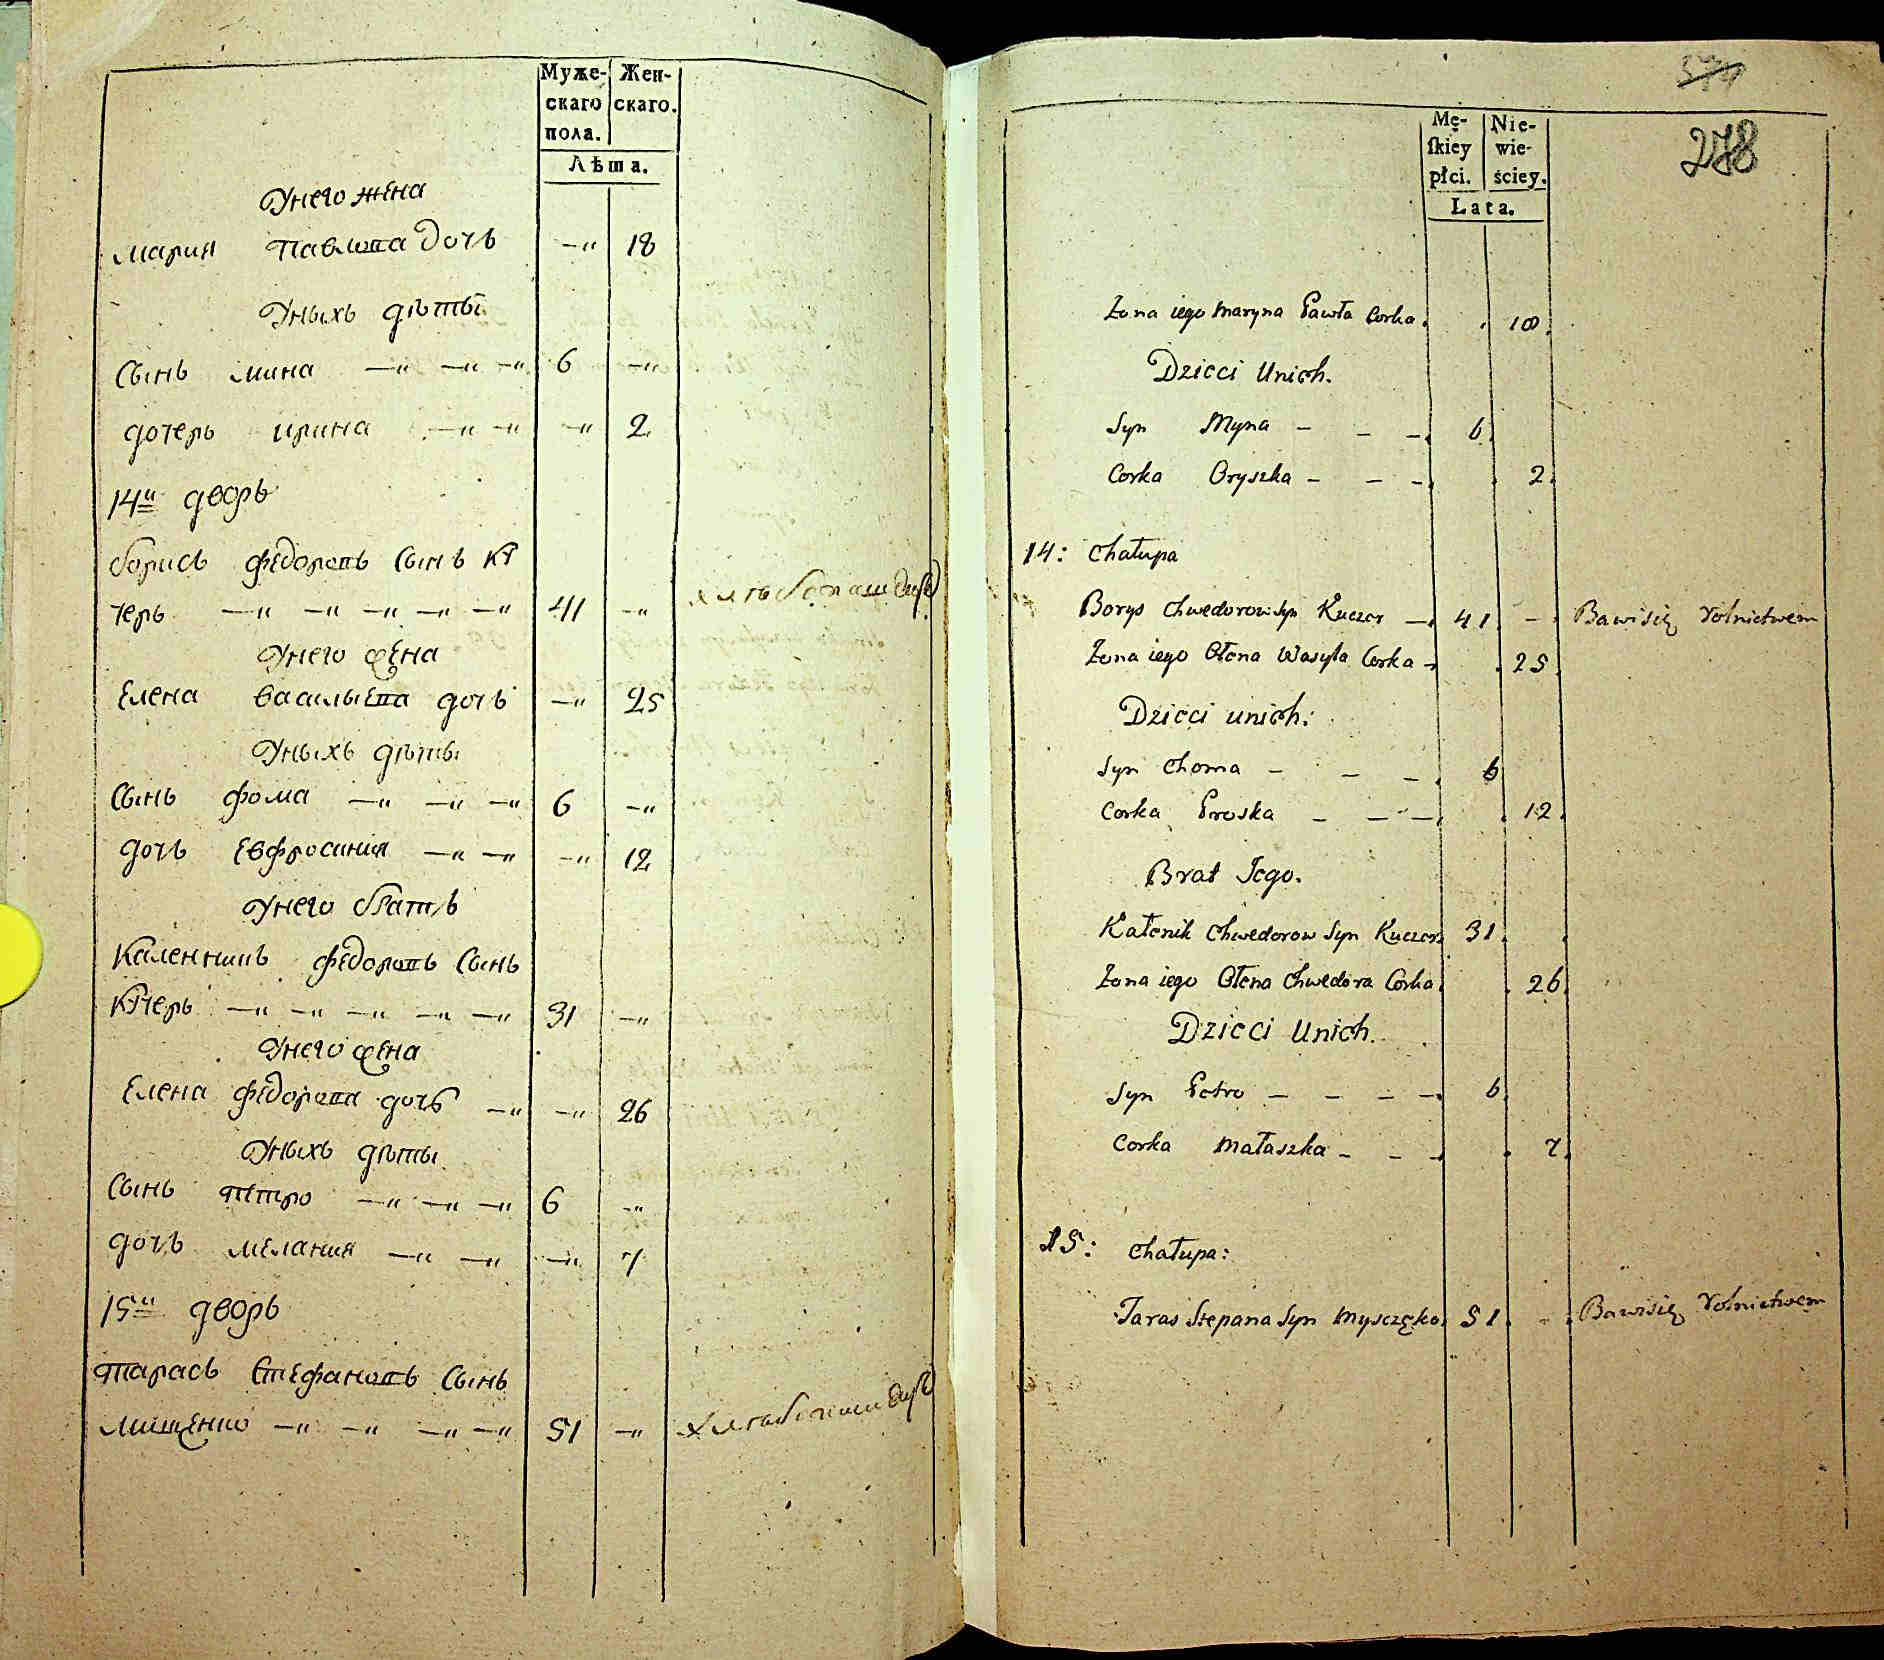 Муже- Жен-
скаго скаго.
пола.
Лѣта.
Унего жена
мария павлова дочь —" 18
Уныхъ дѣты
Сынъ мина —" —" —" 6 —"
дочерь ирина —" —" —" 2
14й дворъ
борисъ федоровъ Сынъ ку
черь —" —" —" —" —" 41 —" хлѣбопашецъ
Унего жена
Елена васильева дочь —" 25
Уныхъ дѣты
Сынъ фома —" —" —" 6 —"
дочь Евфросиния —" —" —" 12
Унего братъ
Каленникъ федоровъ Сынъ
кучерь —" —" —" —" —" 31 —"
Унего жена
Елена федорова дочь —" —" 26
Уныхъ дѣты
Сынъ петро —" —" —" 6 —"
дочь мелания —" —" —" 7
15й дворъ
тарасъ Стефановъ Сынъ
мищенко —" —" —" —" 51 —" хлѣбопашецъ
278
Mę- Nie-
ſkiey wie-
płci. ściey.
Lata.
Żona iego Maryna Pawła Corka . . 18.
Dzieci Unich.
Syn Myna – – – 6.
Corka Oryszka – – – . 2.
14: Chałupa
Borys Chwedorow Syn Kuczer – 41. – . Bawi się rolnictwem
Żona iego Ołena Wasyla Corka – . 25.
Dzieci unich:
Syn Choma – – – . 6
Corka Proska – – – . . 12.
Brat Jego.
Kałenik Chwedorow Syn Kuczer 31. .
Żona iego Ołena Chwedora Corka . . 26.
Dzieci Unich.
Syn Petro – – – – 6.
Corka Małaszka – – – . 7.
15: Chałupa:
Taras Stepana Syn Myszczęko. 51. - . Bawi się rolnictwem